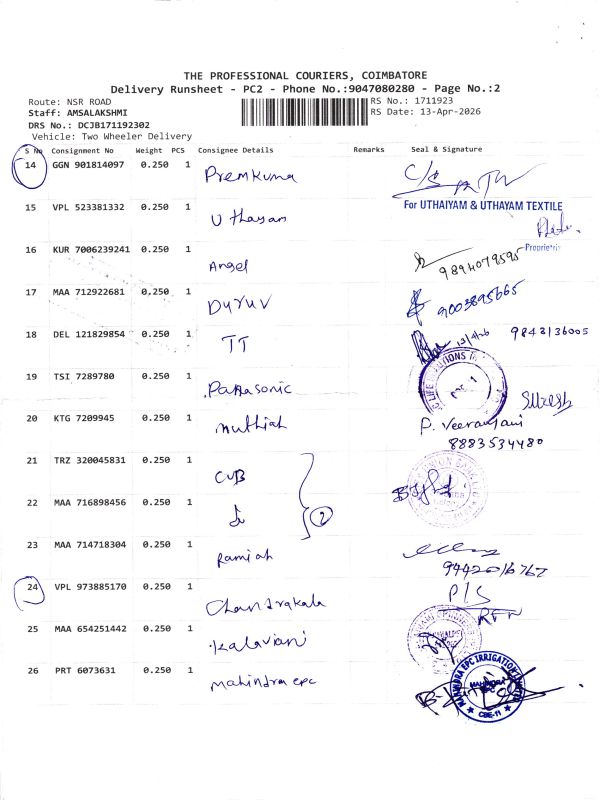 THE PROFESSIONAL COURIERS, COIMBATORE
Delivery Runsheet - PC2 - Phone No.:9047080280 - Page No.:2
Route: NSR ROAD
RS No.: 1711923
Staff: AMSALAKSHMI
RS Date: 13-Apr-2026
DRS No.: DCJB171192302
Vehicle: Two Wheeler Delivery
S No Consignment No Weight PCS Consignee Details Remarks Seal & Signature
14 GGN 901814097 0.250 1 Premkuma
For UTHAIYAM & UTHAYAM TEXTILE
15 VPL 523381332 0.250 1 Uthayam
Proprietrix
16 KUR 7006239241 0.250 1 Angel 9894079595
17 MAA 712922681 0.250 1 Dyruv 9003895665
18 DEL 121829854 0.250 1 TT 13/4/26 9843136005
19 TSI 7289780 0.250 1 Panasonic
Suresh
20 KTG 7209945 0.250 1 muthiah P. Veeranjani
8883534480
21 TRZ 320045831 0.250 1 CUB
22 MAA 716898456 0.250 1 2
23 MAA 714718304 0.250 1 Ramiah
9442016767
24 VPL 973885170 0.250 1 Chandrakala P/S
25 MAA 654251442 0.250 1 Kalaivani
26 PRT 6073631 0.250 1 Mahindra epc
MAHINDRA EPC IRRIGATION LIMITED
MAHINDRA EPC
CBE-11